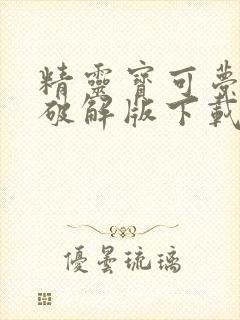 精靈寶可夢
破解版下載
優曇琉璃